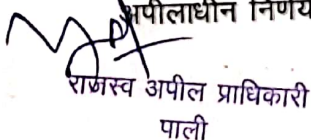 अपीलाधीन निर्णय
राजस्व अपील प्राधिकारी
पाली